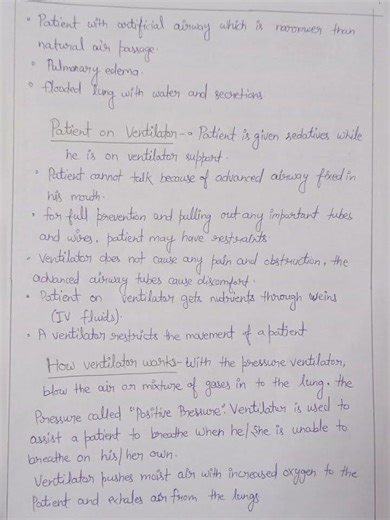 • Patient with artificial airway which is narrower than
natural air passage.
• Pulmonary edema.
• flooded lung with water and secretions
Patient on Ventilator → Patient is given sedatives while
he is on ventilator support.
• Patient cannot talk because of advanced airway fixed in
his mouth.
• for full prevention and pulling out any important tubes
and wires, patient may have restraints
• Ventilator does not cause any pain and obstruction, the
advanced airway tubes cause discomfort.
• Patient on ventilator gets nutrients through veins
(IV fluids).
• A ventilator restricts the movement of a patient
How ventilator works - With the pressure ventilator,
blow the air or mixture of gases in to the lung. the
Pressure called "Positive Pressure". Ventilator is used to
assist a patient to breathe when he/she is unable to
breathe on his/her own.
Ventilator pushes moist air with increased oxygen to the
Patient and exhales air from the lungs